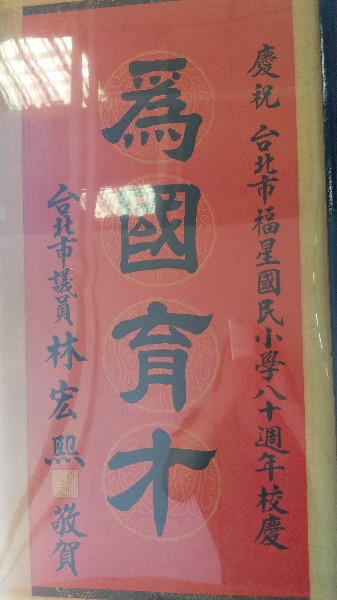 慶祝 台北市福星國民小學八十週年校慶
為國育才
台北市議員 林宏熙 敬賀